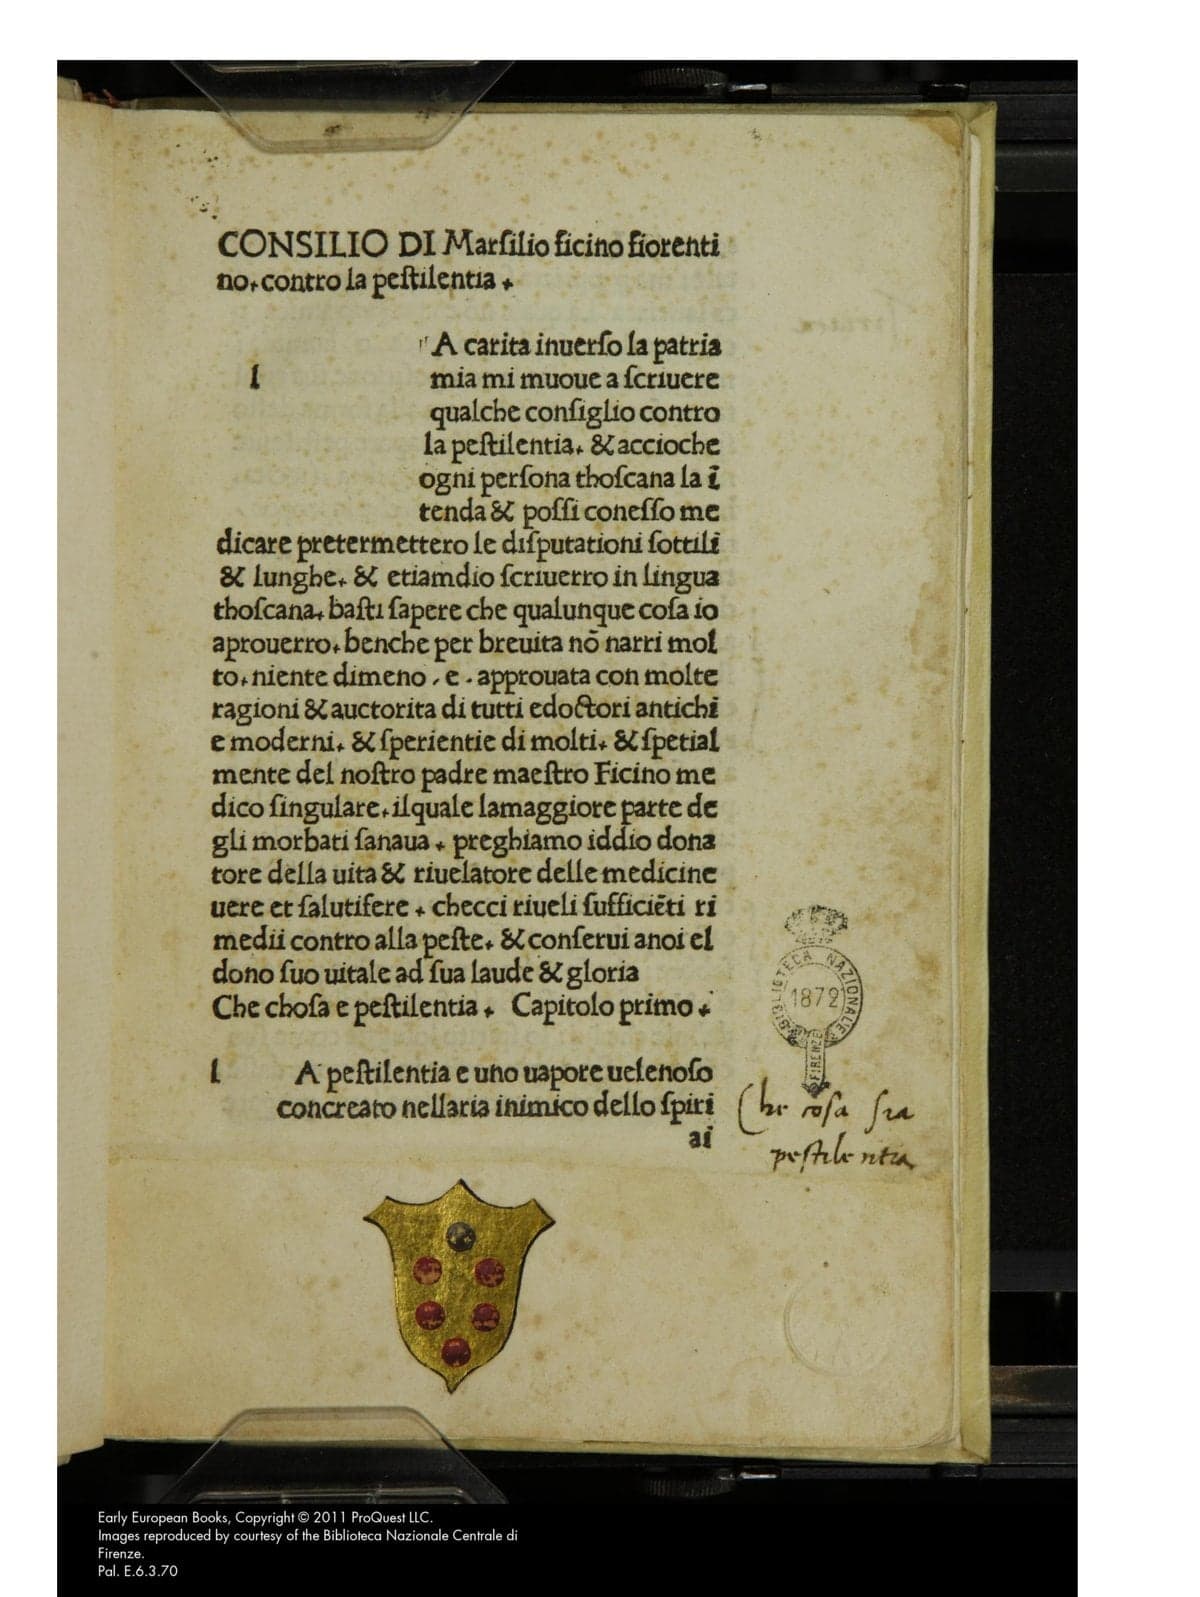 CONSILIO DI Marſilio ficino fiorenti
no. contro la peſtilentia.
A carita inuerſo la patria
l mia mi muoue a ſcriuere
qualche conſiglio contro
la peſtilentia. & accioche
ogni perſona thoſcana la ī
tenda & poſſi coneſſo me
dicare pretermettero le diſputationi ſottili
& lunghe. & etiamdio ſcriuerro in lingua
thoſcana. baſti ſapere che qualunque coſa io
aprouerro. benche per breuita nō narri mol
to. niente dimeno . e . approuata con molte
ragioni & auctorita di tutti edoctori antichi
e moderni. & ſperientie di molti. & ſpetial
mente del noſtro padre maeſtro Ficino me
dico ſingulare. ilquale lamaggiore parte de
gli morbati ſanaua. preghiamo iddio dona
tore della uita & riuelatore delle medicine
uere et ſalutifere. checci riueli ſufficiēti ri
medii contro alla peſte. & conſerui anoi el
dono ſuo uitale ad ſua laude & gloria
Che choſa e peſtilentia. Capitolo primo.
l A peſtilentia e uno uapore uelenoſo
concreato nellaria inimico dello ſpiri
ai
BIBLIOTECA NAZIONALE
1872
FIRENZE
Che coſa ſia
peſtilentia
Early European Books, Copyright © 2011 ProQuest LLC.
Images reproduced by courtesy of the Biblioteca Nazionale Centrale di
Firenze.
Pal. E.6.3.70